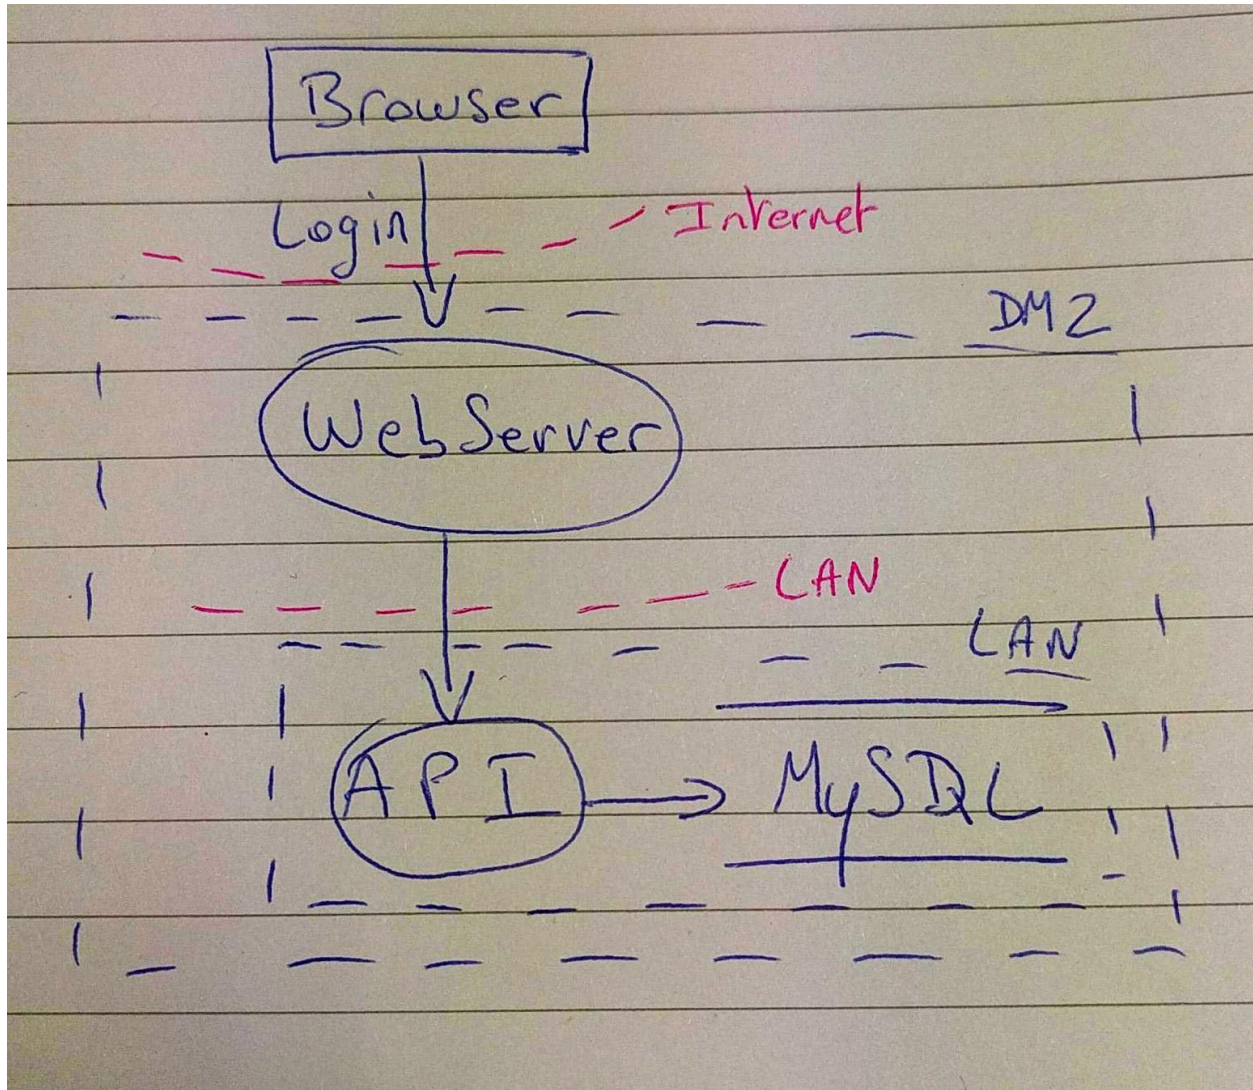 Browser
Login
Internet
DMZ
WebServer
LAN
LAN
API
MySQL